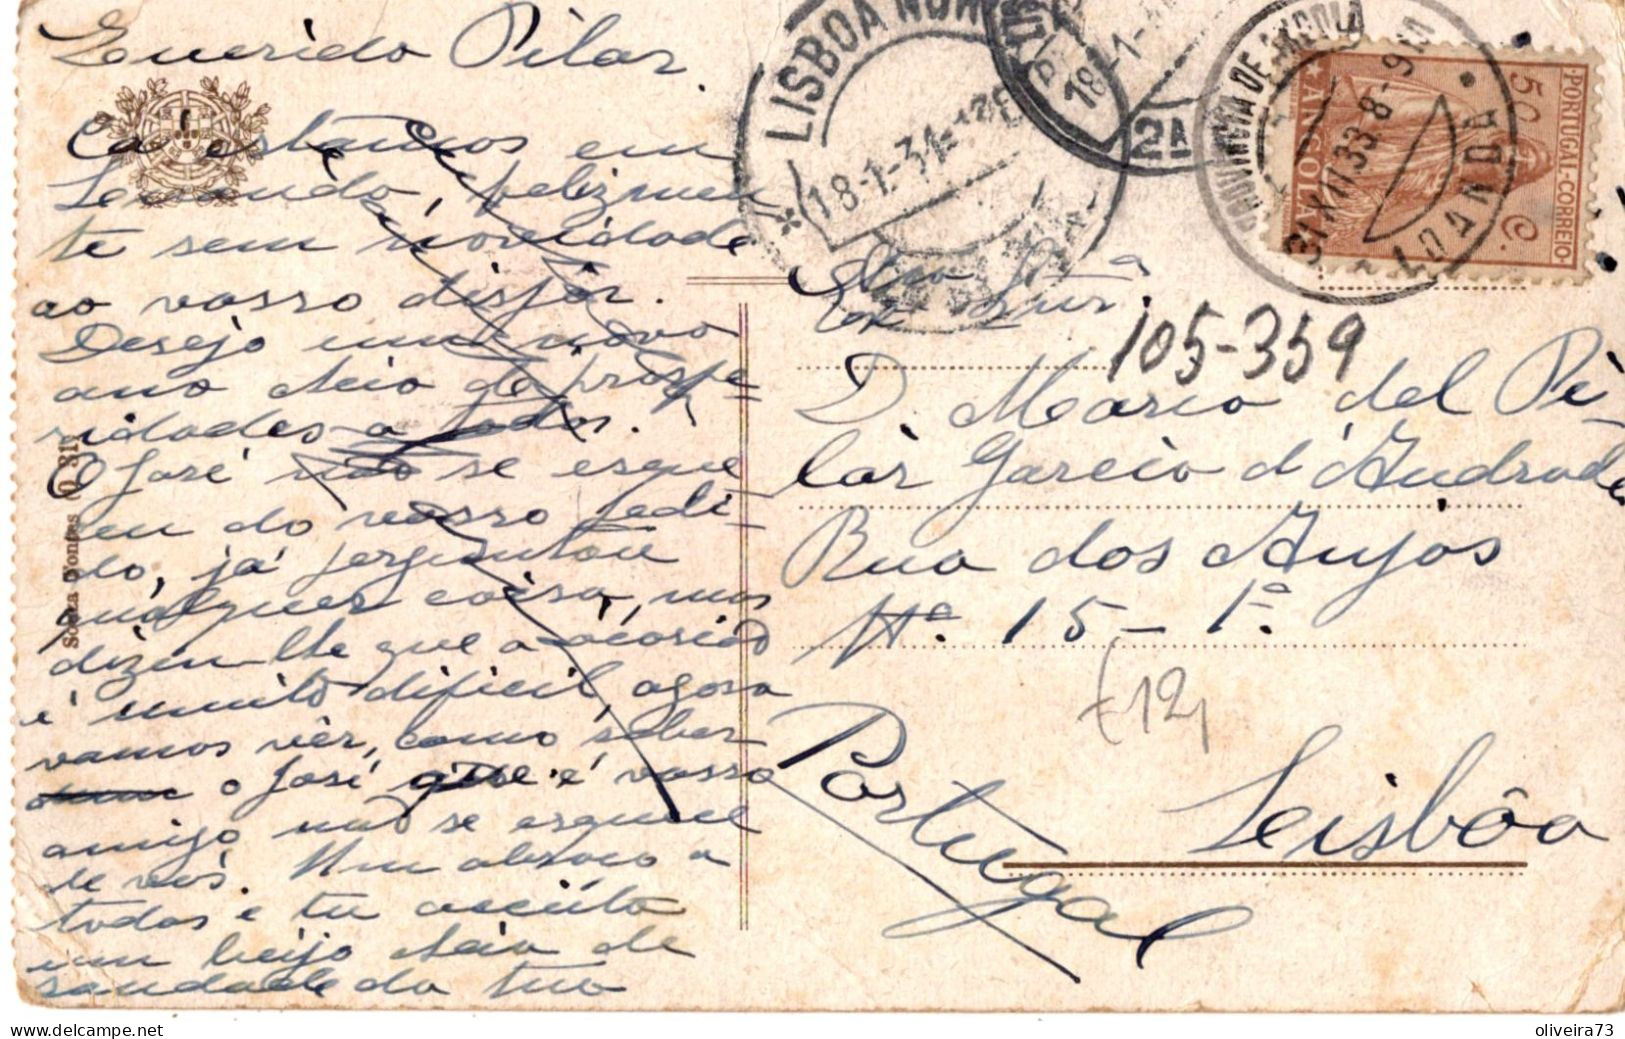 Querida Pilar.
Cá estamos em
Loanda, felizmen
te sem novidade
ao vosso dispôr.
Desejo um novo
ano cheio de prospe-
ridades a todos.
O José não se esque
ceu do vosso pedi-
do, já perguntou
qualquer coisa, mas
dizem-lhe que a ocasião
é muito dificil, agora
vamos vêr, como saber
o José que é vosso
amigo não se esquece
de vós. Um abraço a
todos e tu aceita
um beijo cheio de
saudade da tua
Souza Pontes
LISBOA NOR
18-1-34
2A
PROVINCIA DE ANGOLA
31 XII 33 8-9
LOANDA
PORTUGAL-CORREIO
50 C.
ANGOLA
Ex.ma Snr.ª
105-359
D. Maria del Pi-
lar Garcia d'Andrade
Rua dos Anjos
Nº. 15-1º.
12
Lisbôa
Portugal
oliveira73